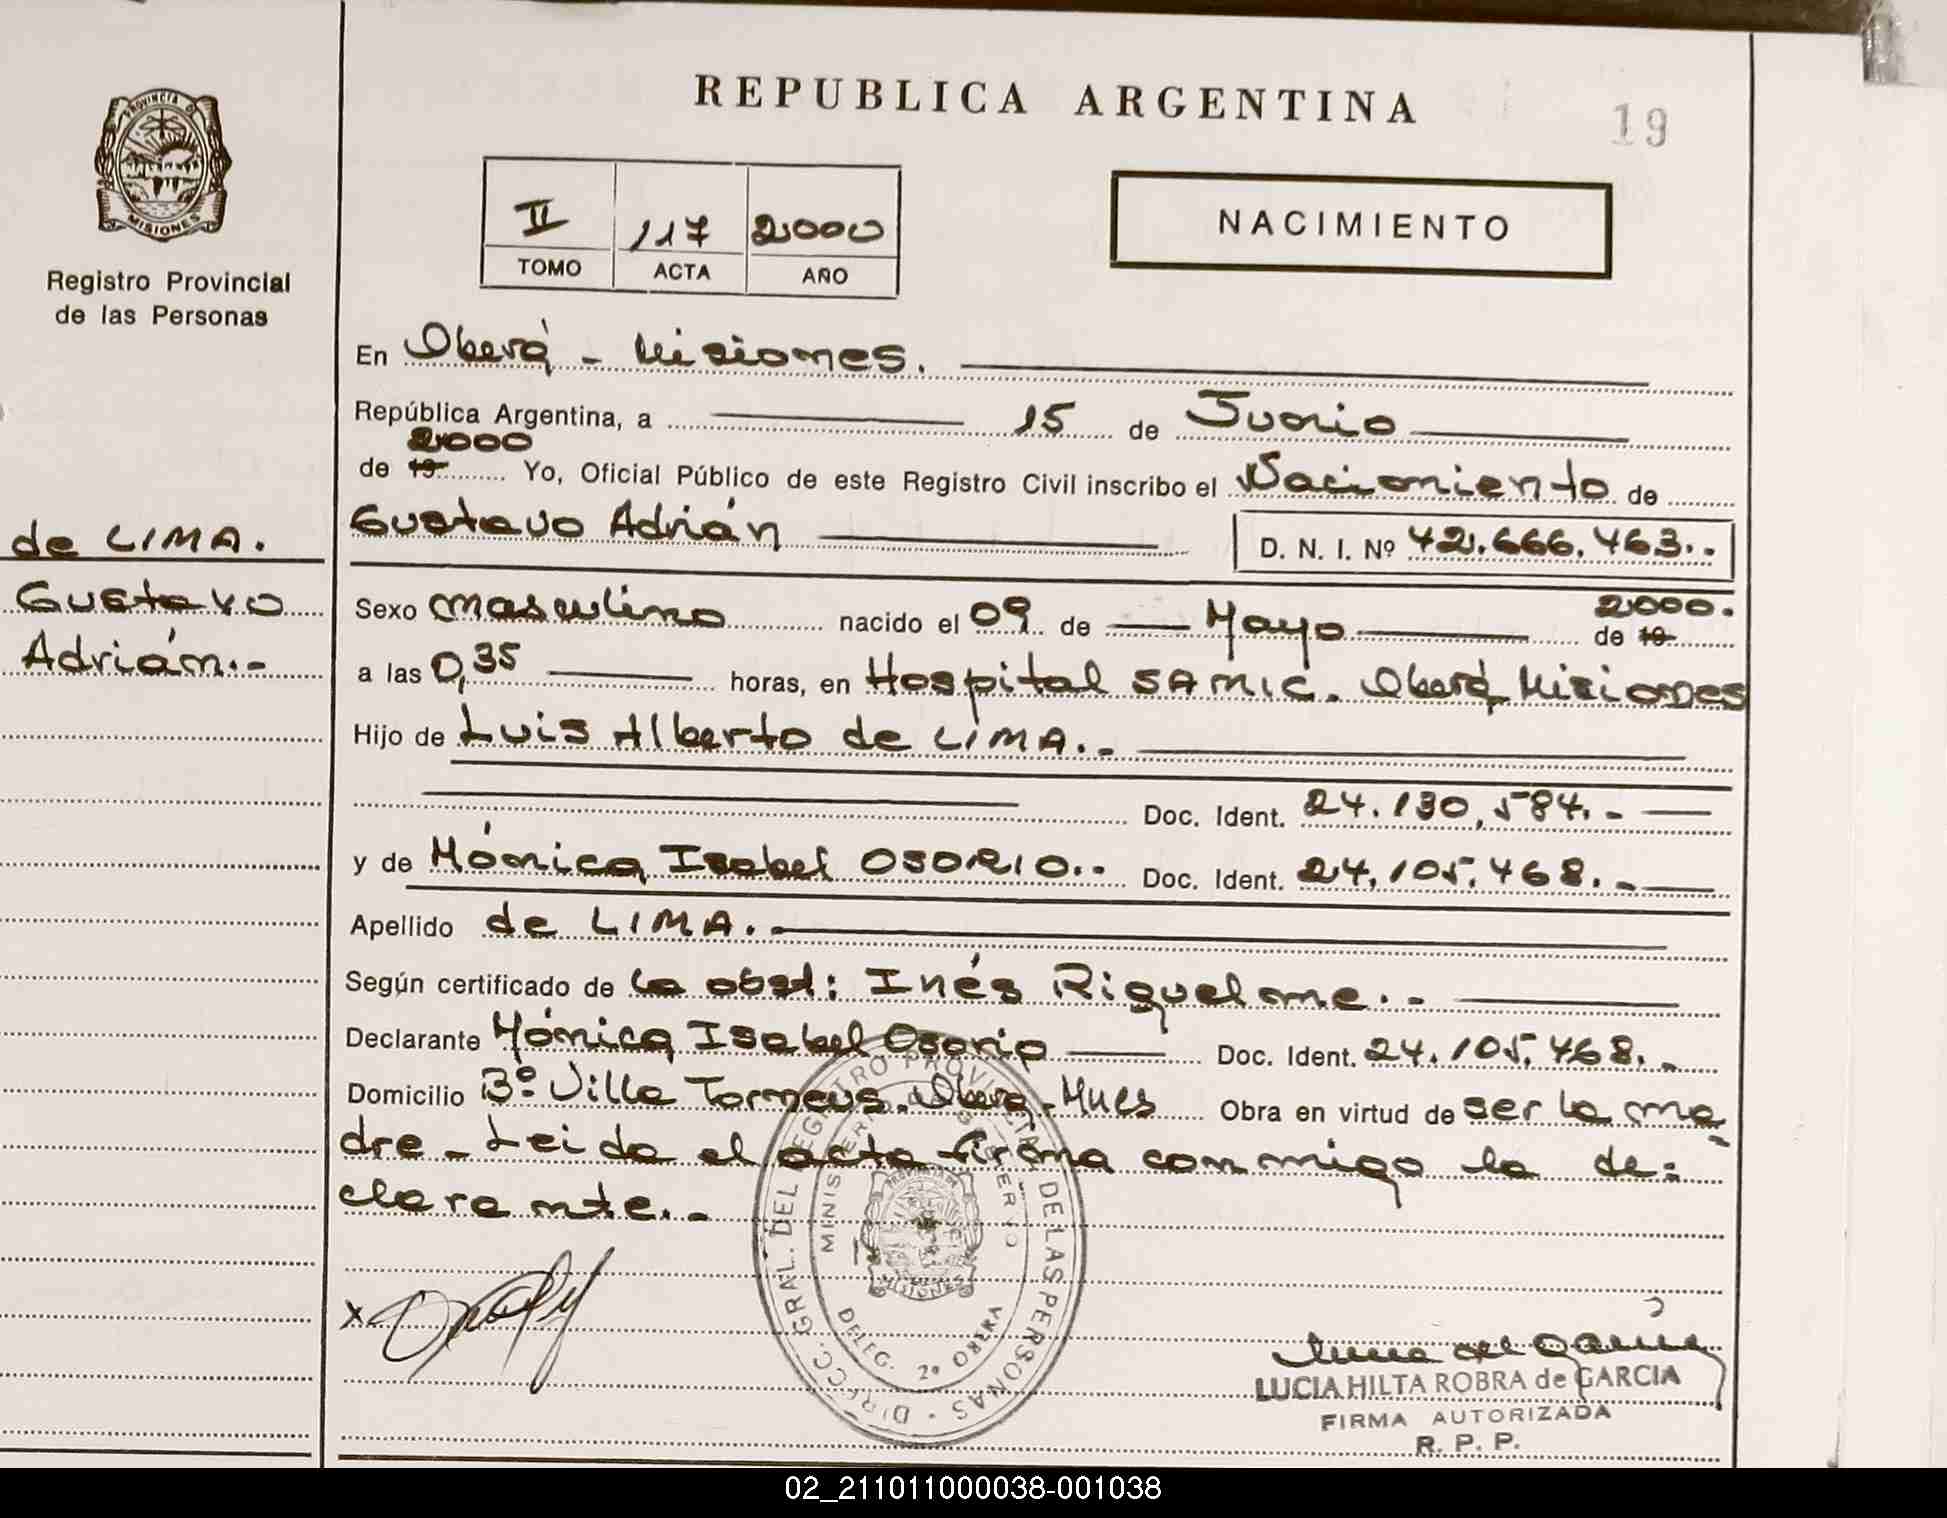 REPUBLICA ARGENTINA
19
PROVINCIA DE
MISIONES
Registro Provincial
de las Personas
II 117 2000
TOMO ACTA AÑO
NACIMIENTO
En Oberá - Misiones.
República Argentina, a 15 de Junio
2000
de 19 Yo, Oficial Público de este Registro Civil inscribo el Nacimiento de
Gustavo Adrián D. N. I. Nº 42.666.463..
de LIMA.
Gustavo
Adrián.-
Sexo masculino nacido el 09 de Mayo de 19 2000.
a las 0,35 horas, en Hospital SAMIC. Oberá Misiones
Hijo de Luis Alberto de LIMA.-
Doc. Ident. 24.130.584.-
y de Mónica Isabel OSORIO.. Doc. Ident. 24.105.468.-
Apellido de LIMA.-
Según certificado de la obst: Inés Riquelme.-
Declarante Mónica Isabel Osorio Doc. Ident. 24.105.468.-
Domicilio Bº Villa Torneus. Oberá - Mnes Obra en virtud de ser la ma
dre - Leida el acta firma conmigo la de=
clarante.-
DIRECC. GRAL. DEL REGISTRO PROVINCIAL DE LAS PERSONAS
MINISTERIO DE GOBIERNO
MISIONES
DELEG. 2ª OBERA
x
LUCIA HILTA ROBRA de GARCIA
FIRMA AUTORIZADA
R. P. P.
02_211011000038-001038